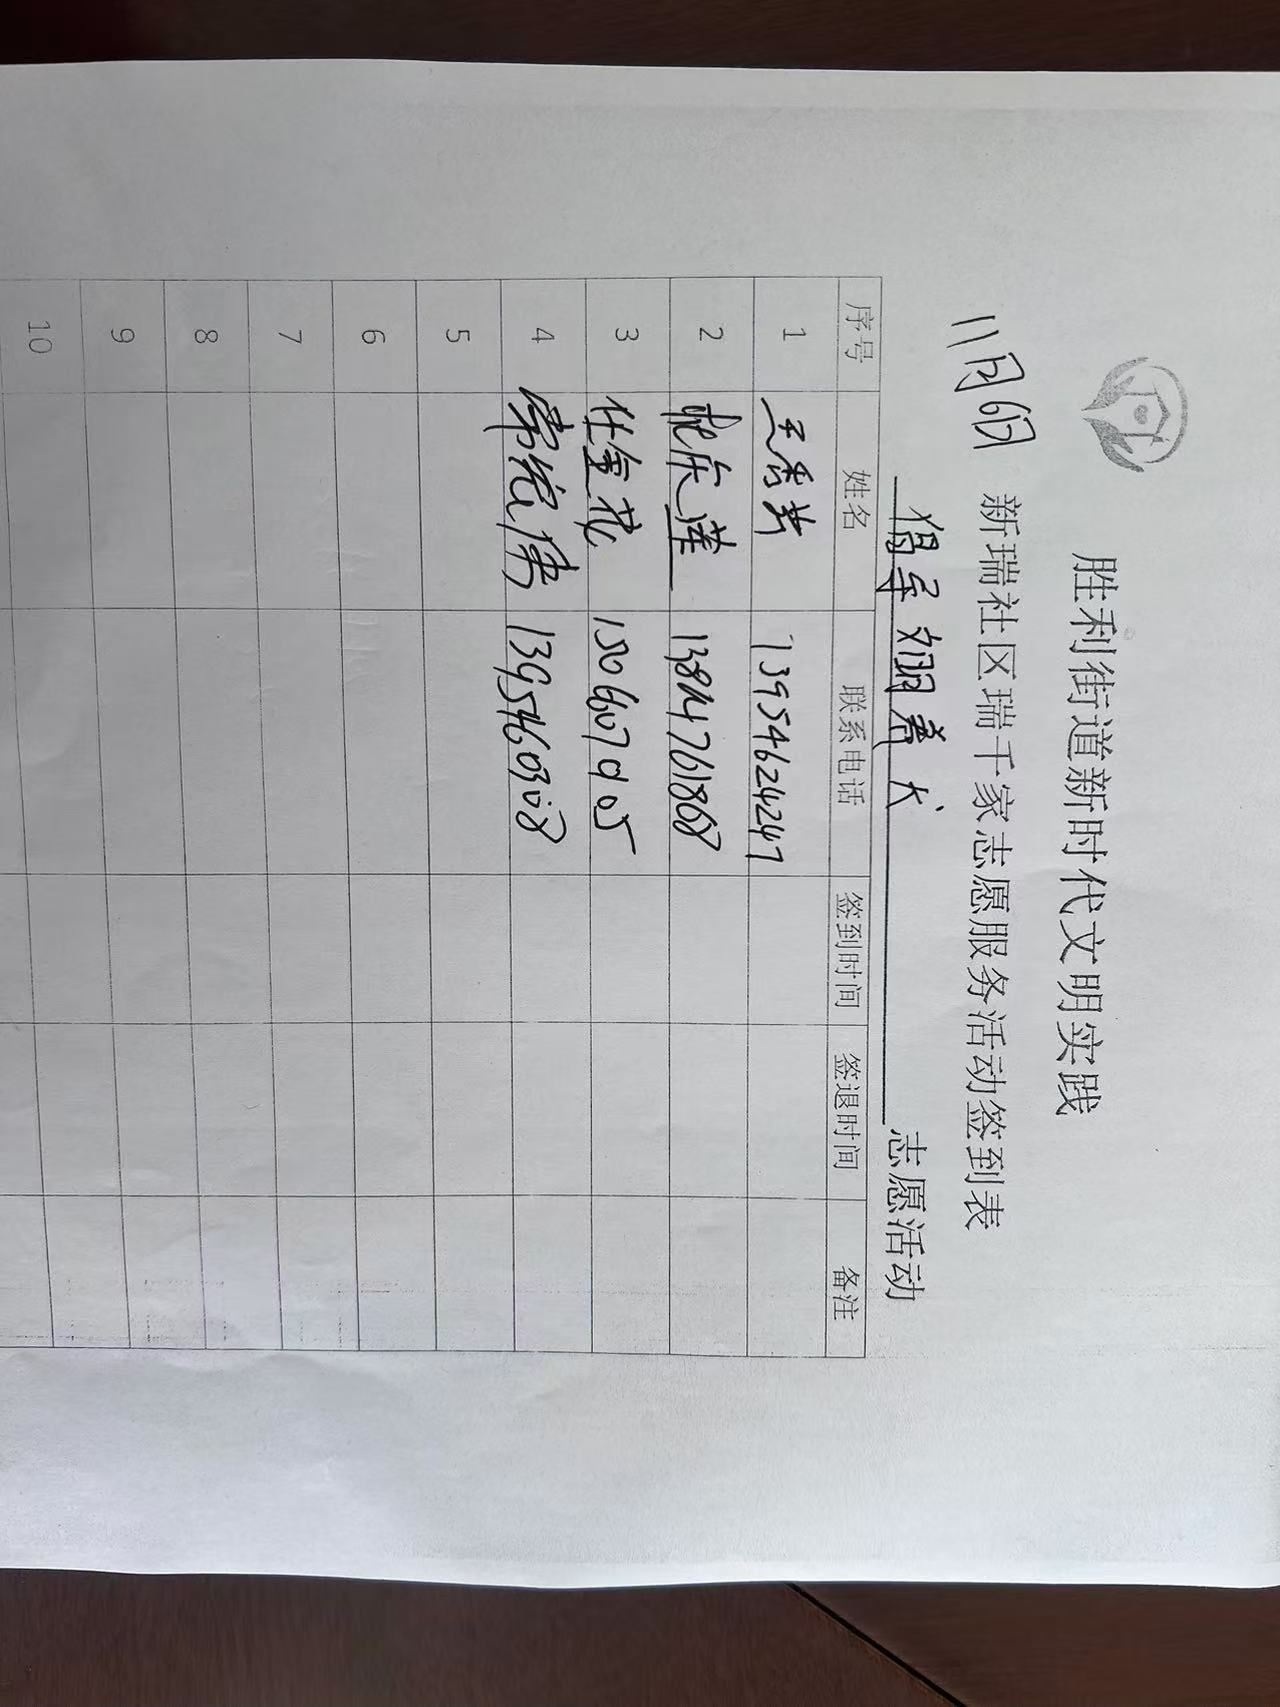 胜利街道新时代文明实践
11月6日 新瑞社区瑞千家志愿服务活动签到表
倡导文明养犬 志愿活动
序号 姓名 联系电话 签到时间 签退时间 备注
1 王秀芳 13954624247
2 张庆莲 13814761868
3 任金花
4 1395460308
5
6
7
8
9
10